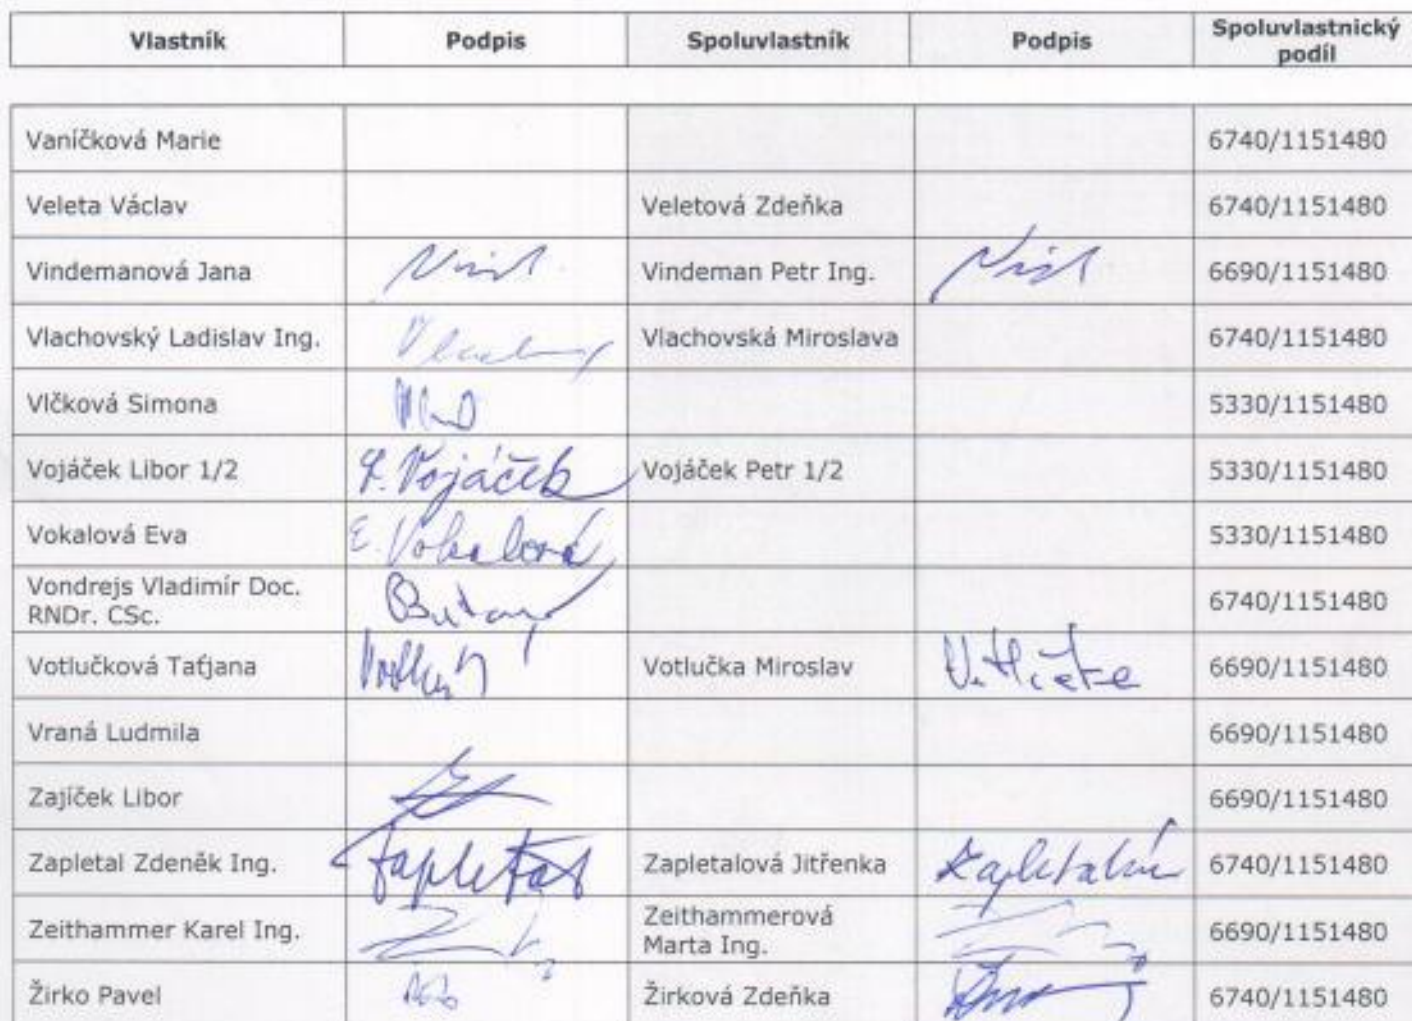 Vlastník Podpis Spoluvlastník Podpis Spoluvlastnický podíl
Vaníčková Marie 6740/1151480
Veleta Václav Veletová Zdeňka 6740/1151480
Vindemanová Jana Vindeman Petr Ing. 6690/1151480
Vlachovský Ladislav Ing. Vlachovská Miroslava 6740/1151480
Vlčková Simona 5330/1151480
Vojáček Libor 1/2 L. Vojáček Vojáček Petr 1/2 5330/1151480
Vokalová Eva E. Vokalová 5330/1151480
Vondrejs Vladimír Doc.
RNDr. CSc. 6740/1151480
Votlučková Taťjana Votlučka Miroslav 6690/1151480
Vraná Ludmila 6690/1151480
Zajíček Libor 6690/1151480
Zapletal Zdeněk Ing. Zapletal Zapletalová Jitřenka Zapletalová 6740/1151480
Zeithammer Karel Ing. Zeithammerová
Marta Ing. 6690/1151480
Žirko Pavel Žirková Zdeňka 6740/1151480